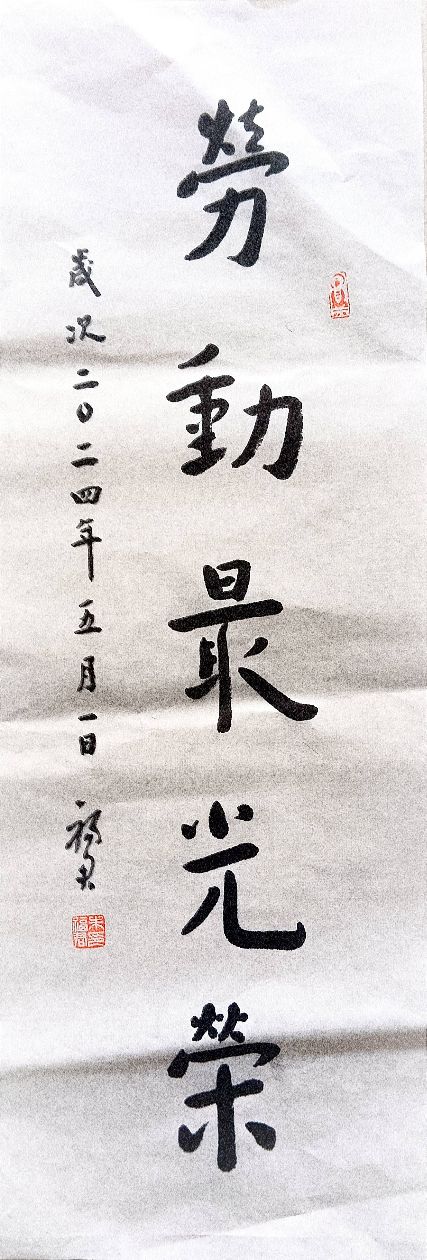 勞動最光榮
歲次二〇二四年五月一日